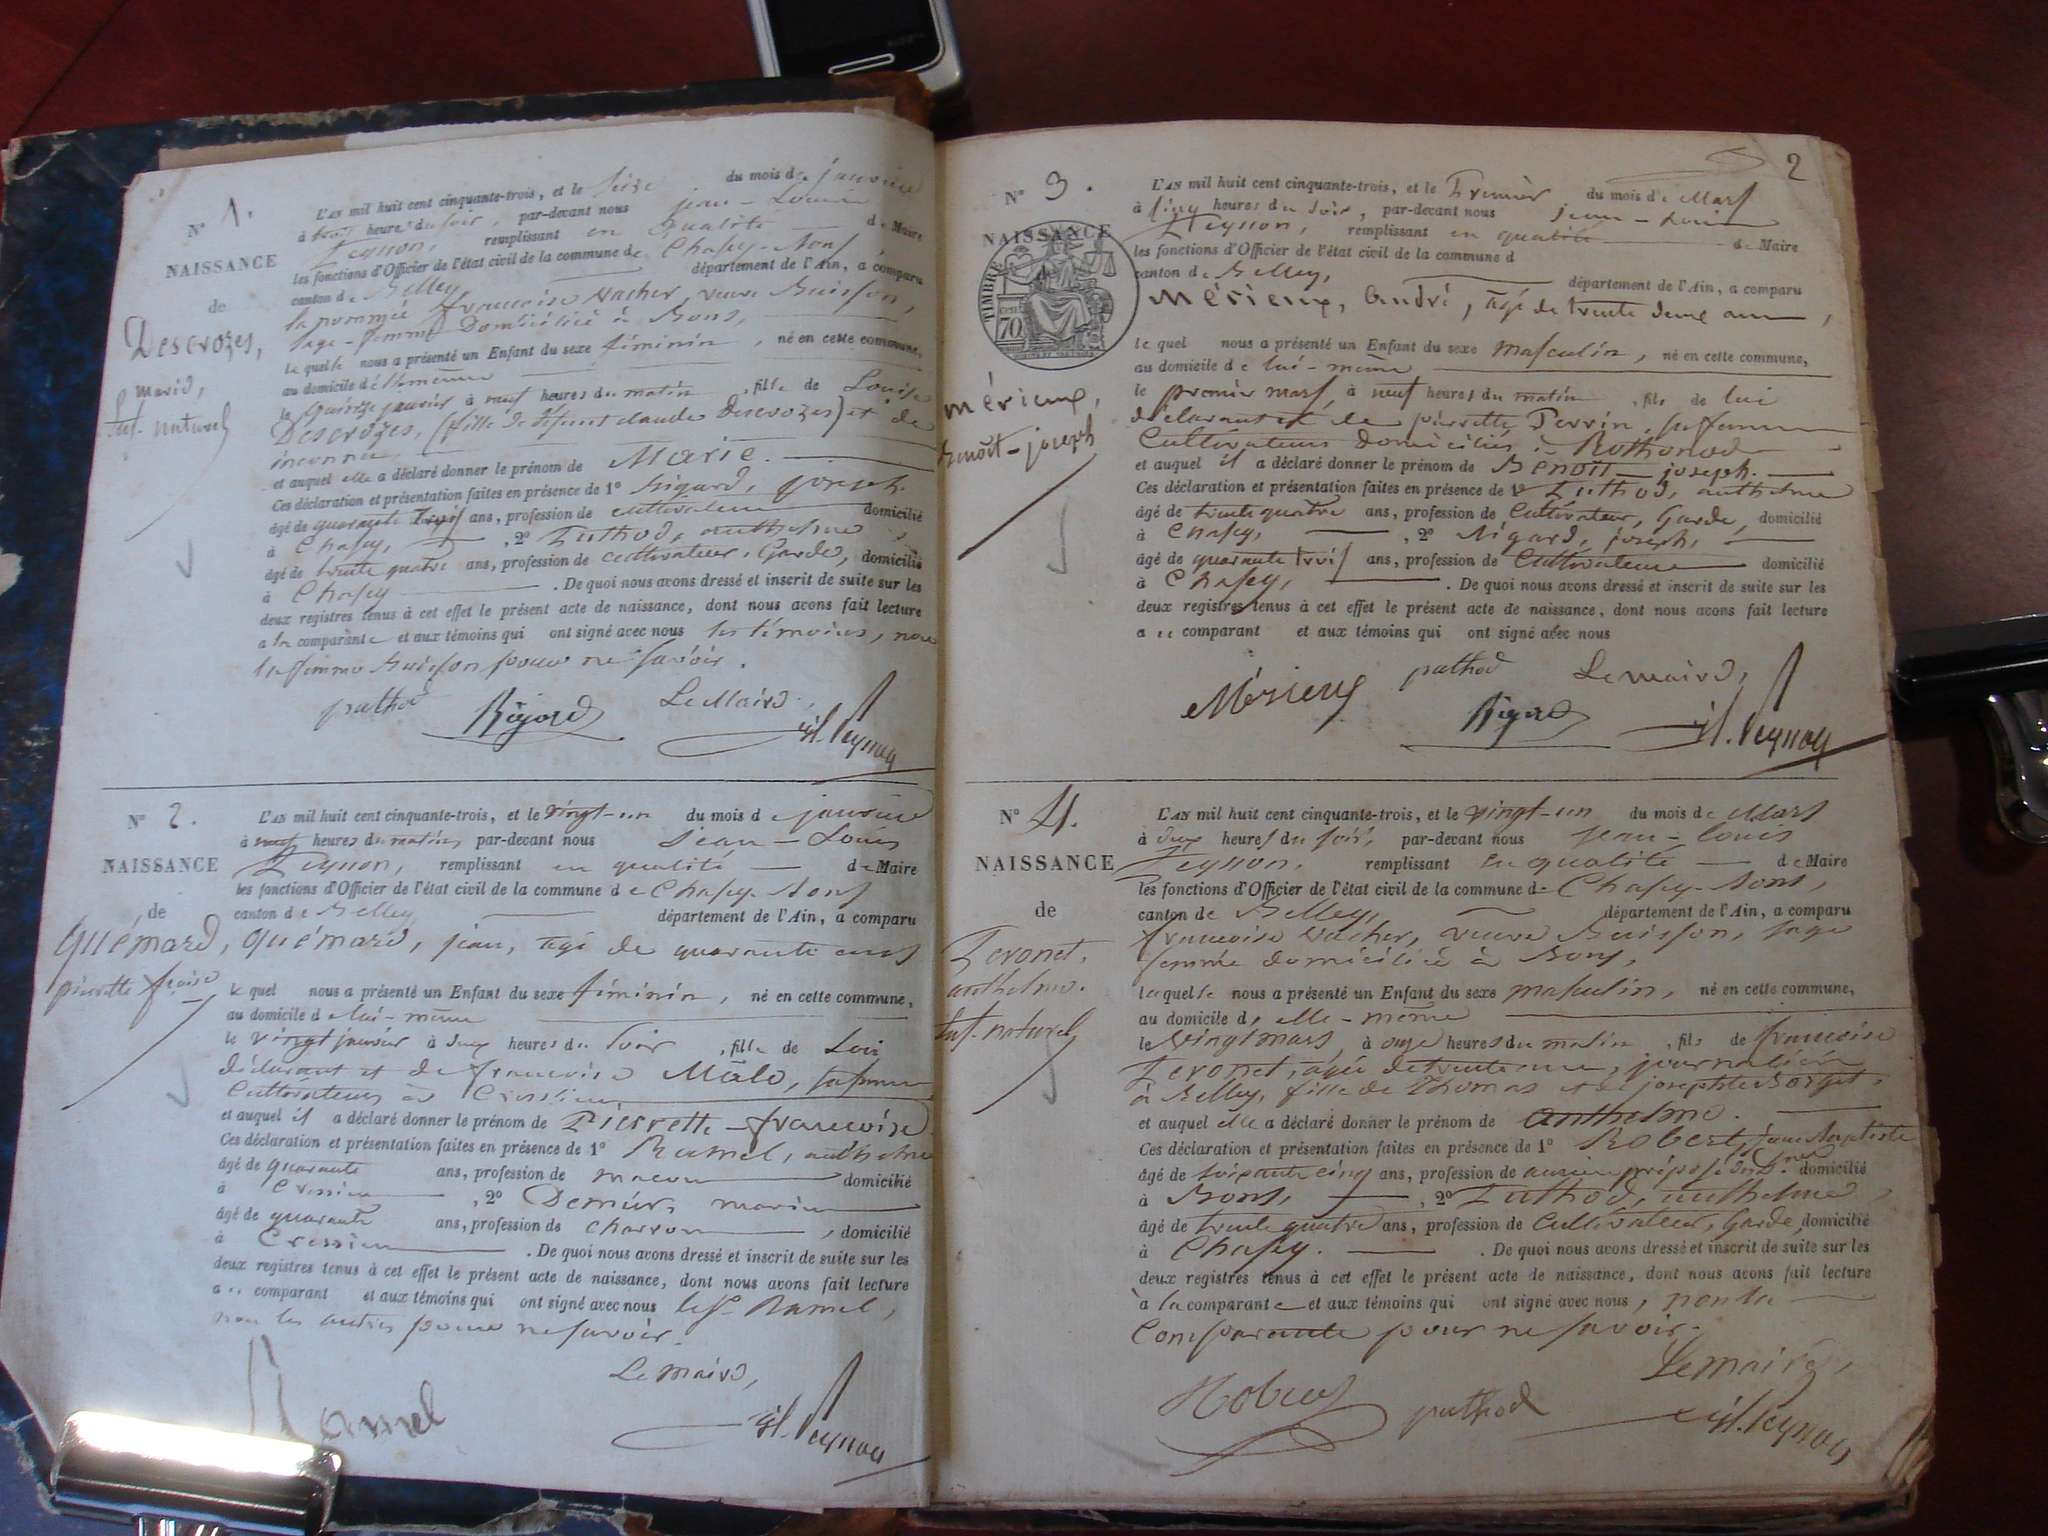 N° 1.
NAISSANCE
de
Descrozes,
Marie,
Enf. naturel
L'AN mil huit cent cinquante-trois, et le seize du mois de janvier
à heures du soir, par-devant nous jean-Louis
Peysson, remplissant en qualité de Maire
les fonctions d'Officier de l'état civil de la commune de Chasey-Bons,
canton de Belley, département de l'Ain, a comparu
la nommée francoise vacher, veuve Buisson,
sage-femme Domiciliée à Bons,
laquelle nous a présenté un Enfant du sexe féminin, né en cette commune,
au domicile d'elle même
le quinze janvier à neuf heures du matin, fille de Louise
Descrozes, (fille de défunt claude Descrozes) et de
inconnu
et auquel elle a déclaré donner le prénom de Marie.
Ces déclaration et présentation faites en présence de 1° Rigard, joseph.
âgé de quarante trois ans, profession de cultivateur domicilié
à Chasey, , 2° Puthod, anthelme
âgé de trente quatre ans, profession de cultivateur, Garde, domicilié
à Chasey . De quoi nous avons dressé et inscrit de suite sur les
deux registres tenus à cet effet le présent acte de naissance, dont nous avons fait lecture
a la comparante et aux témoins qui ont signé avec nous les témoins, non
la femme Buisson pour ne savoir.
puthod Rigard Le Maire,
jl. Peysson
N° 2.
NAISSANCE
de
Quémard,
pierrette
L'AN mil huit cent cinquante-trois, et le vingt-un du mois de janvier
à neuf heures du matin, par-devant nous jean-Louis
Peysson, remplissant en qualité de Maire
les fonctions d'Officier de l'état civil de la commune de Chasey-Bons
canton de Belley département de l'Ain, a comparu
Quémard, jean, agé de quarante ans
le quel nous a présenté un Enfant du sexe féminin, né en cette commune,
au domicile de lui-même
le vingt janvier à deux heures du soir, fille de Lui
déclarant et de francoise Malo, sa femme
Cultivateurs à Cressieu
et auquel il a déclaré donner le prénom de Pierrette-francoise
Ces déclaration et présentation faites en présence de 1° Ramel, anthelme
âgé de quarante ans, profession de macon domicilié
à Cressieu , 2° Demeure, marin
âgé de quarante ans, profession de charron, domicilié
à Cressieu . De quoi nous avons dressé et inscrit de suite sur les
deux registres tenus à cet effet le présent acte de naissance, dont nous avons fait lecture
a comparant et aux témoins qui ont signé avec nous le sr Ramel,
non les autres pour ne savoir.
Le Maire,
Ramel jl. Peysson
2
N° 3.
NAISSANCE
TIMBRE
70
mérieux,
benoît-joseph
L'AN mil huit cent cinquante-trois, et le Premier du mois de Mars
à cinq heures du soir, par-devant nous jean-Louis
Peysson, remplissant en qualité de Maire
les fonctions d'Officier de l'état civil de la commune d
canton de Belley, département de l'Ain, a comparu
Mérieux, André, agé de trente deux ans,
le quel nous a présenté un Enfant du sexe masculin, né en cette commune,
au domicile de lui-même
le premier mars, à neuf heures du matin, fils de lui
déclarant et de pierrette Perrin, sa femme
Cultivateurs domiciliés à Rothonod
et auquel il a déclaré donner le prénom de Benoit-joseph.
Ces déclaration et présentation faites en présence de 1° Puthod, anthelme
âgé de trente quatre ans, profession de Cultivateur, Garde, domicilié
à Chasey, , 2° Rigard, joseph,
âgé de quarante trois ans, profession de Cultivateur domicilié
à Chasey, . De quoi nous avons dressé et inscrit de suite sur les
deux registres tenus à cet effet le présent acte de naissance, dont nous avons fait lecture
a ce comparant et aux témoins qui ont signé avec nous
Mérieux puthod Le maire,
Rigard jl. Peysson
N° 4.
NAISSANCE
de
Peronet,
anthelme.
Enf. naturel
L'AN mil huit cent cinquante-trois, et le vingt-un du mois de Mars
à deux heures du soir, par-devant nous jean-louis
Peysson, remplissant en qualité de Maire
les fonctions d'Officier de l'état civil de la commune de Chasey-Bons,
canton de Belley, département de l'Ain, a comparu
francoise vacher, veuve Buisson, sage
femme domiciliée à Bons,
laquelle nous a présenté un Enfant du sexe masculin, né en cette commune,
au domicile d'elle-même
le vingt mars à onze heures du matin, fils de francoise
Peronet, agée de trente ans, journalière
à Belley, fille de Thomas et de josephte Borget,
et auquel elle a déclaré donner le prénom de anthelme.
Ces déclaration et présentation faites en présence de 1° Robert, jean Baptiste
âgé de soixante cinq ans, profession de ancien préposé des D.nes domicilié
à Bons, , 2° Puthod, anthelme
âgé de trente quatre ans, profession de Cultivateur, Garde, domicilié
à Chasey. . De quoi nous avons dressé et inscrit de suite sur les
deux registres tenus à cet effet le présent acte de naissance, dont nous avons fait lecture
à la comparante et aux témoins qui ont signé avec nous, non la
Comparante pour ne savoir.
Le maire,
Robert puthod jl. Peysson